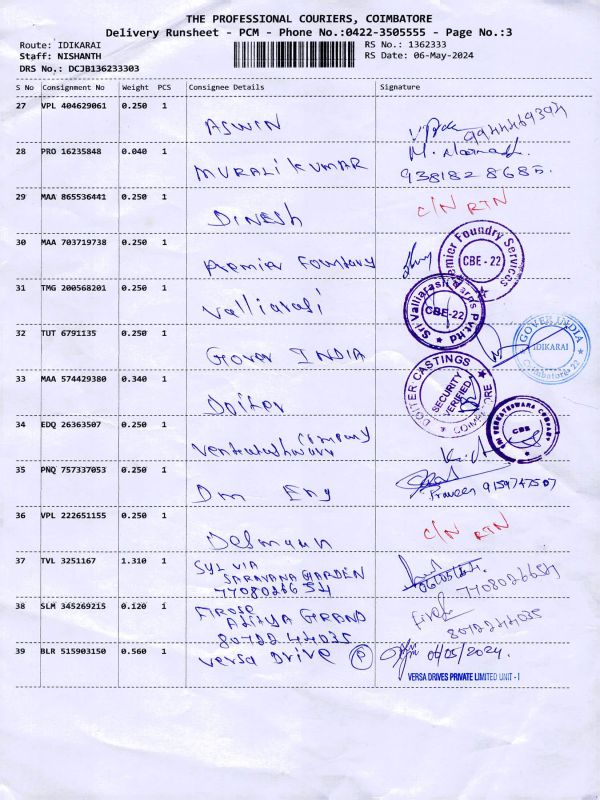 THE PROFESSIONAL COURIERS, COIMBATORE
Delivery Runsheet - PCM - Phone No.:0422-3505555 - Page No.:3
Route: IDIKARAI
RS No.: 1362333
Staff: NISHANTH
RS Date: 06-May-2024
DRS No.: DCJB136233303
S No Consignment No Weight PCS Consignee Details Signature
27 VPL 404629061 0.250 1
ASWIN
28 PRO 16235848 0.040 1
MURALI KUMAR
938182 8685.
29 MAA 865536441 0.250 1
DINESH C/N RTN
30 MAA 703719738 0.250 1
Premier Foundary
Premier Foundry Services
CBE - 22
31 TMG 200568201 0.250 1
Valliarasi
CBE-22
32 TUT 6791135 0.250 1
Gover INDIA
GOVER INDIA
IDIKARAI
Coimbatore 22
33 MAA 574429380 0.340 1
Doiter
DOITER CASTINGS
SECURITY
VERIFIED
COIMBATORE
34 EDQ 26363507 0.250 1
Company
CBE
35 PNQ 757337053 0.250 1
Dm Eng
Praveen 9159747507
36 VPL 222651155 0.250 1
C/N RTN
37 TVL 3251167 1.310 1
SYLVIA
SARAVANA GARDEN
7708026654
06/05/24.
7708026654
38 SLM 345269215 0.120 1
FIROSE
ADITYA GRAND
80722 44035
8072244035
39 BLR 515903150 0.560 1
Versa Drive P
06/05/2024.
VERSA DRIVES PRIVATE LIMITED UNIT - I